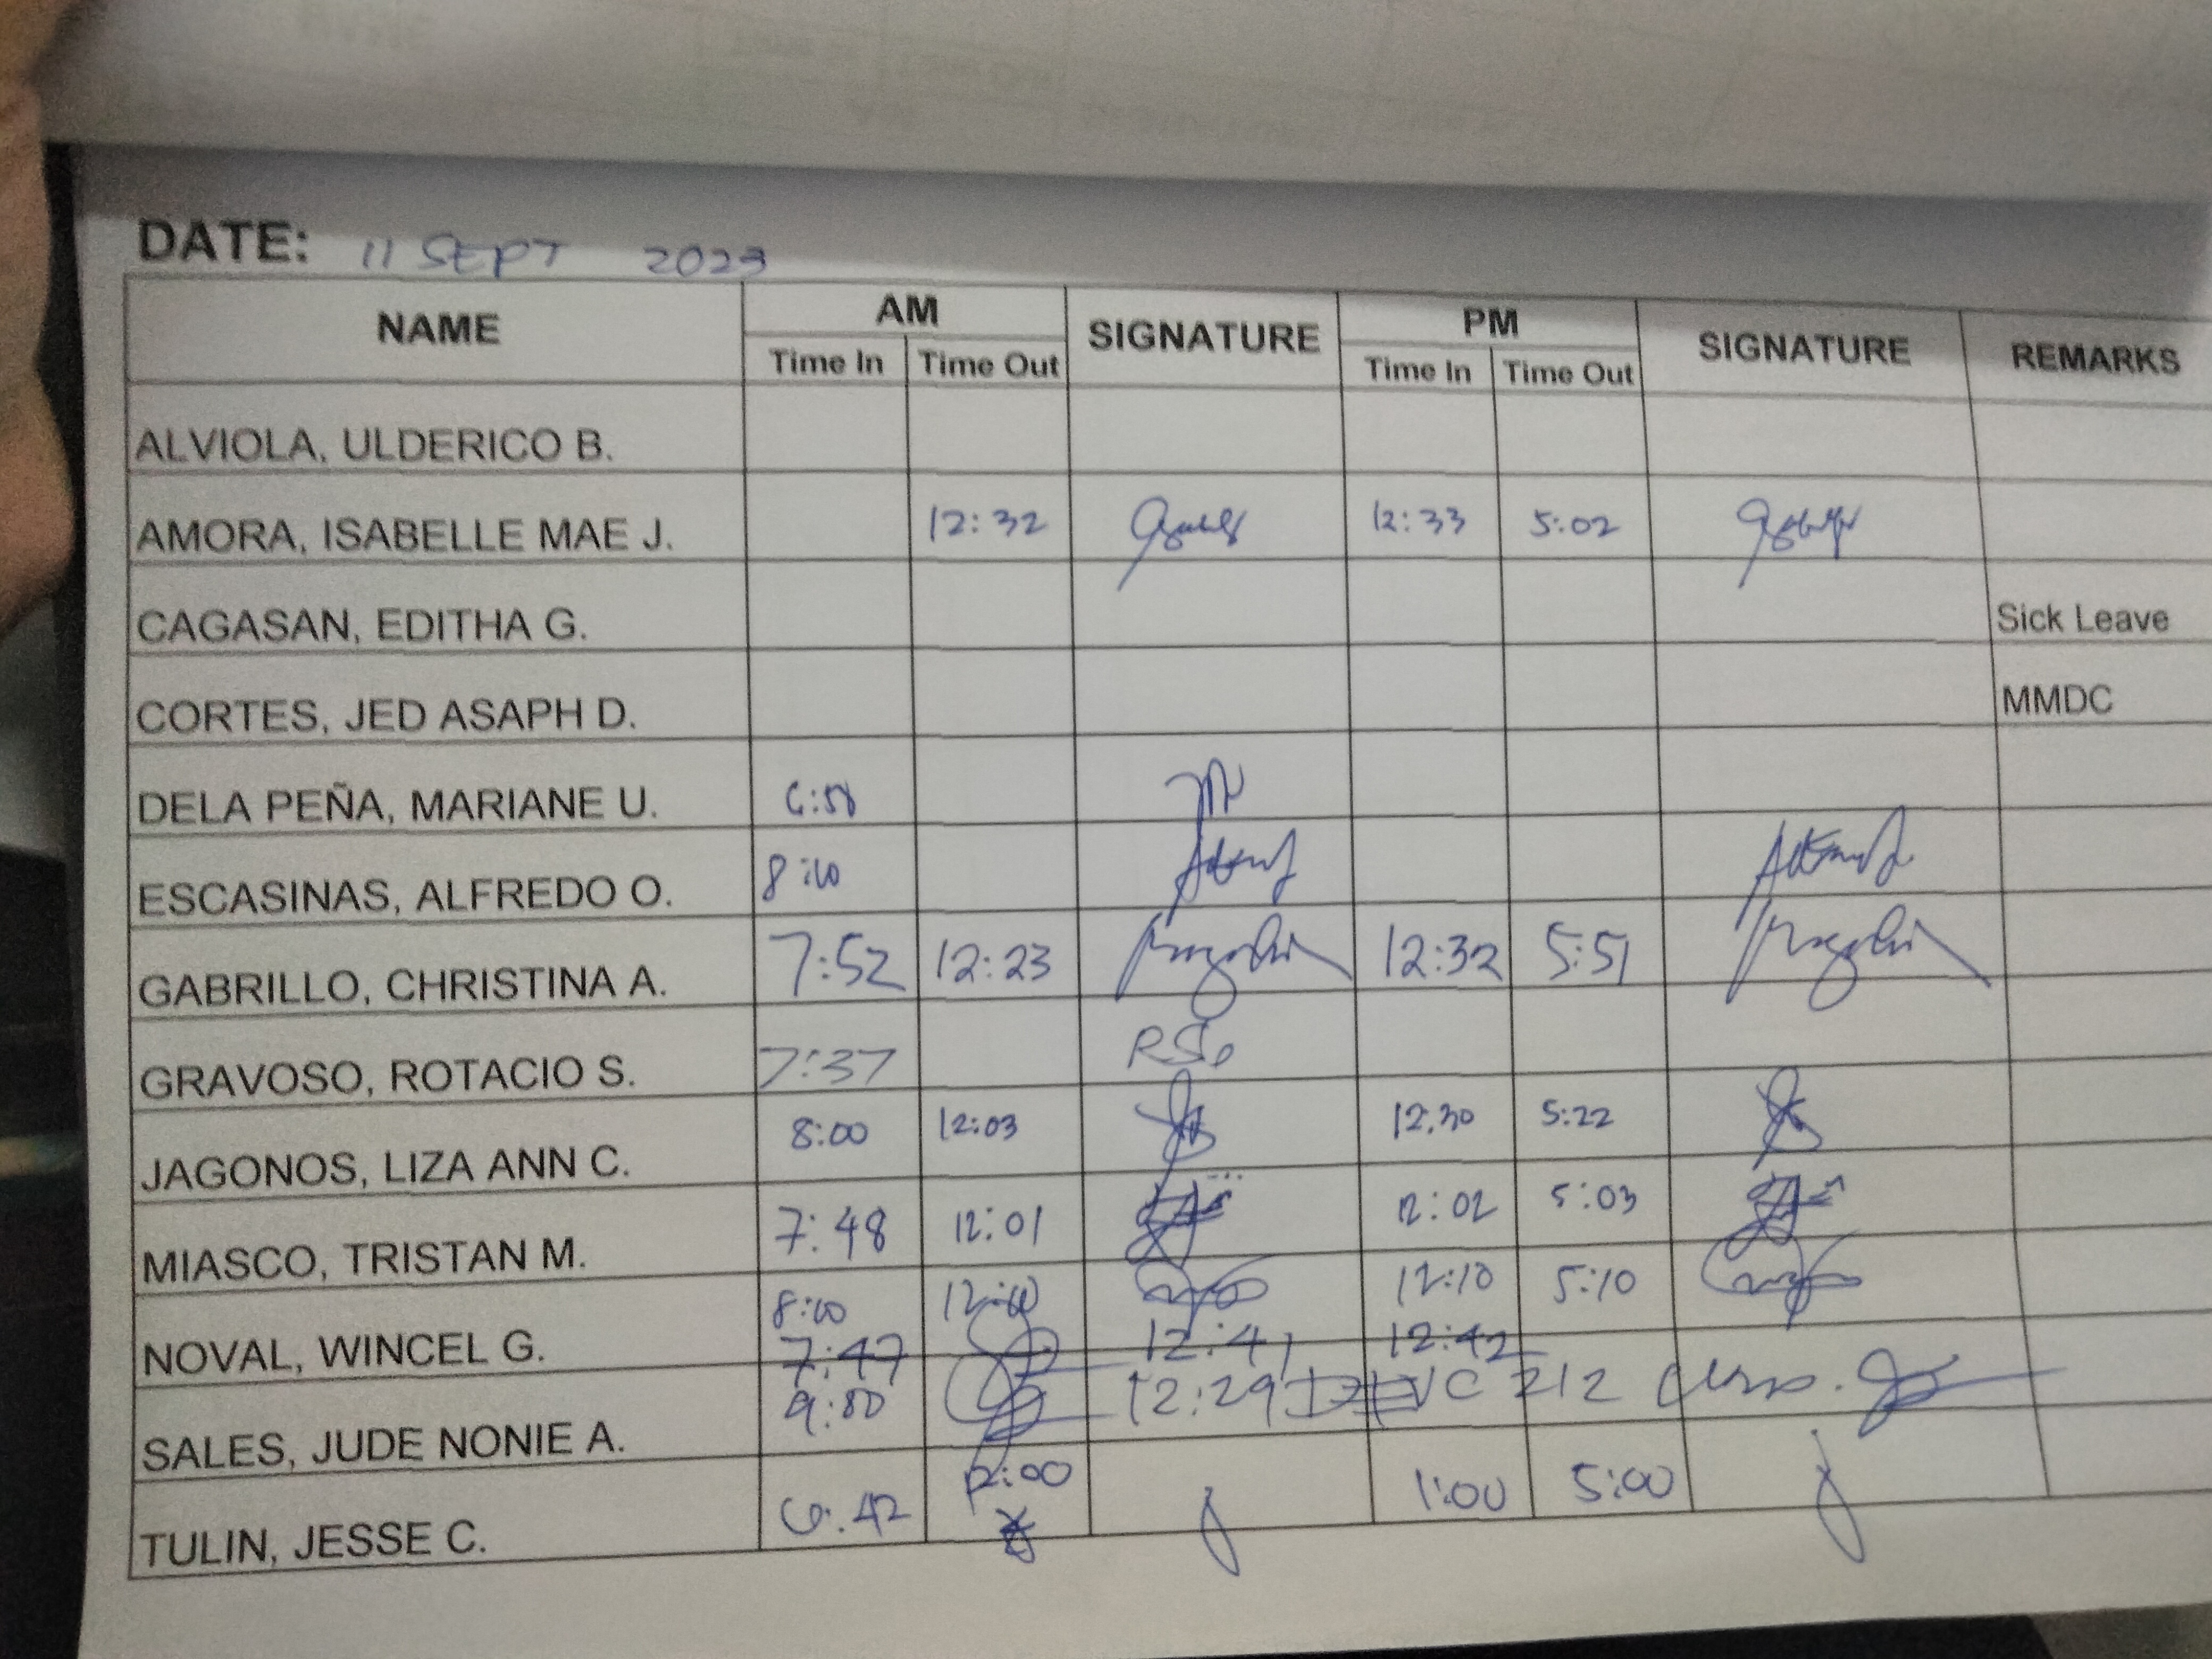 DATE: 11 SEPT 2023
NAME AM SIGNATURE PM SIGNATURE REMARKS
Time In Time Out Time In Time Out
ALVIOLA, ULDERICO B.
AMORA, ISABELLE MAE J. 12:32 12:33 5:02
CAGASAN, EDITHA G. Sick Leave
CORTES, JED ASAPH D. MMDC
DELA PEÑA, MARIANE U. 6:58
ESCASINAS, ALFREDO O. 8:10
GABRILLO, CHRISTINA A. 7:52 12:23 12:32 5:51
GRAVOSO, ROTACIO S. 7:37 RSG
JAGONOS, LIZA ANN C. 8:00 12:03 12:30 5:22
MIASCO, TRISTAN M. 7:48 12:01 12:02 5:03
NOVAL, WINCEL G. 8:00 12:10 12:10 5:10
7:47 12:41 12:42
SALES, JUDE NONIE A. 9:00 12:29 212
TULIN, JESSE C. 6:42 12:00 1:00 5:00